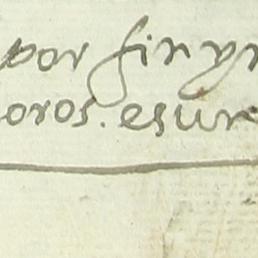 por fin yn
oros. esur